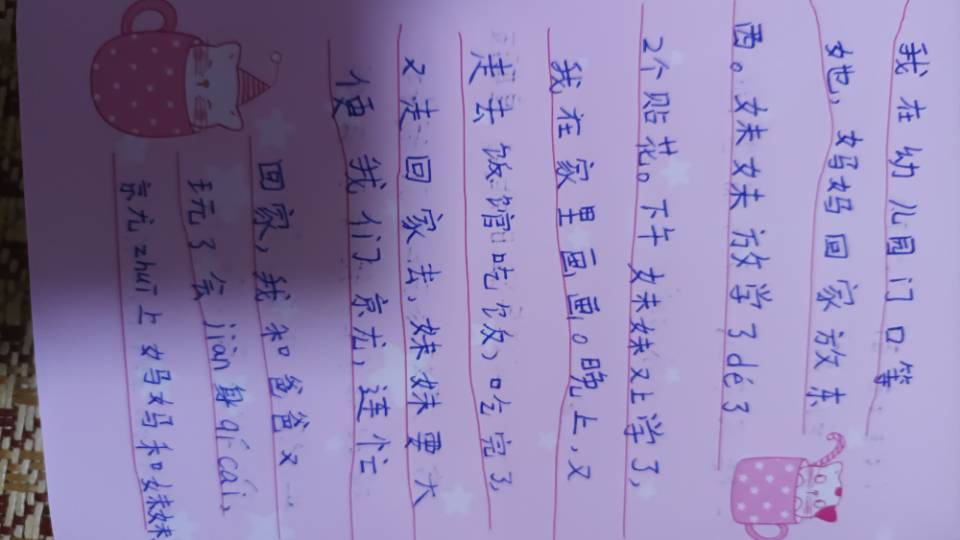 我在幼儿园门口等
她，妈妈回家放东
西。妹妹放学了dé了
2个贴花。下午妹妹又上学了，
我在家里画画。晚上，又
走去饭馆吃饭，吃完了，
又走回家去，妹妹要大
便，我们京尤，连忙
回家，我和爸爸又
玩了会jiàn身qì cái，
京尤zhuī上妈妈和妹妹